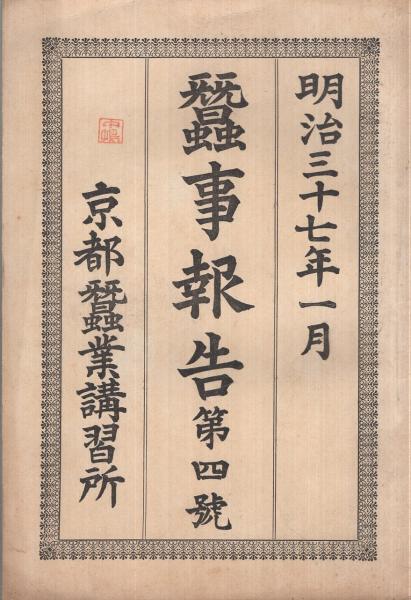 明治三十七年一月
蠶事報告第四號
京都蠶業講習所